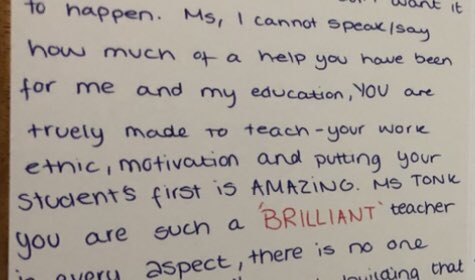 want it
to happen. Ms, I cannot speak/say
how much of a help you have been
for me and my education, YOU are
truely made to teach - your work
ethic, motivation and putting your
students first is AMAZING. MS TONK
you are such a 'BRILLIANT' teacher
in every aspect, there is no one
that